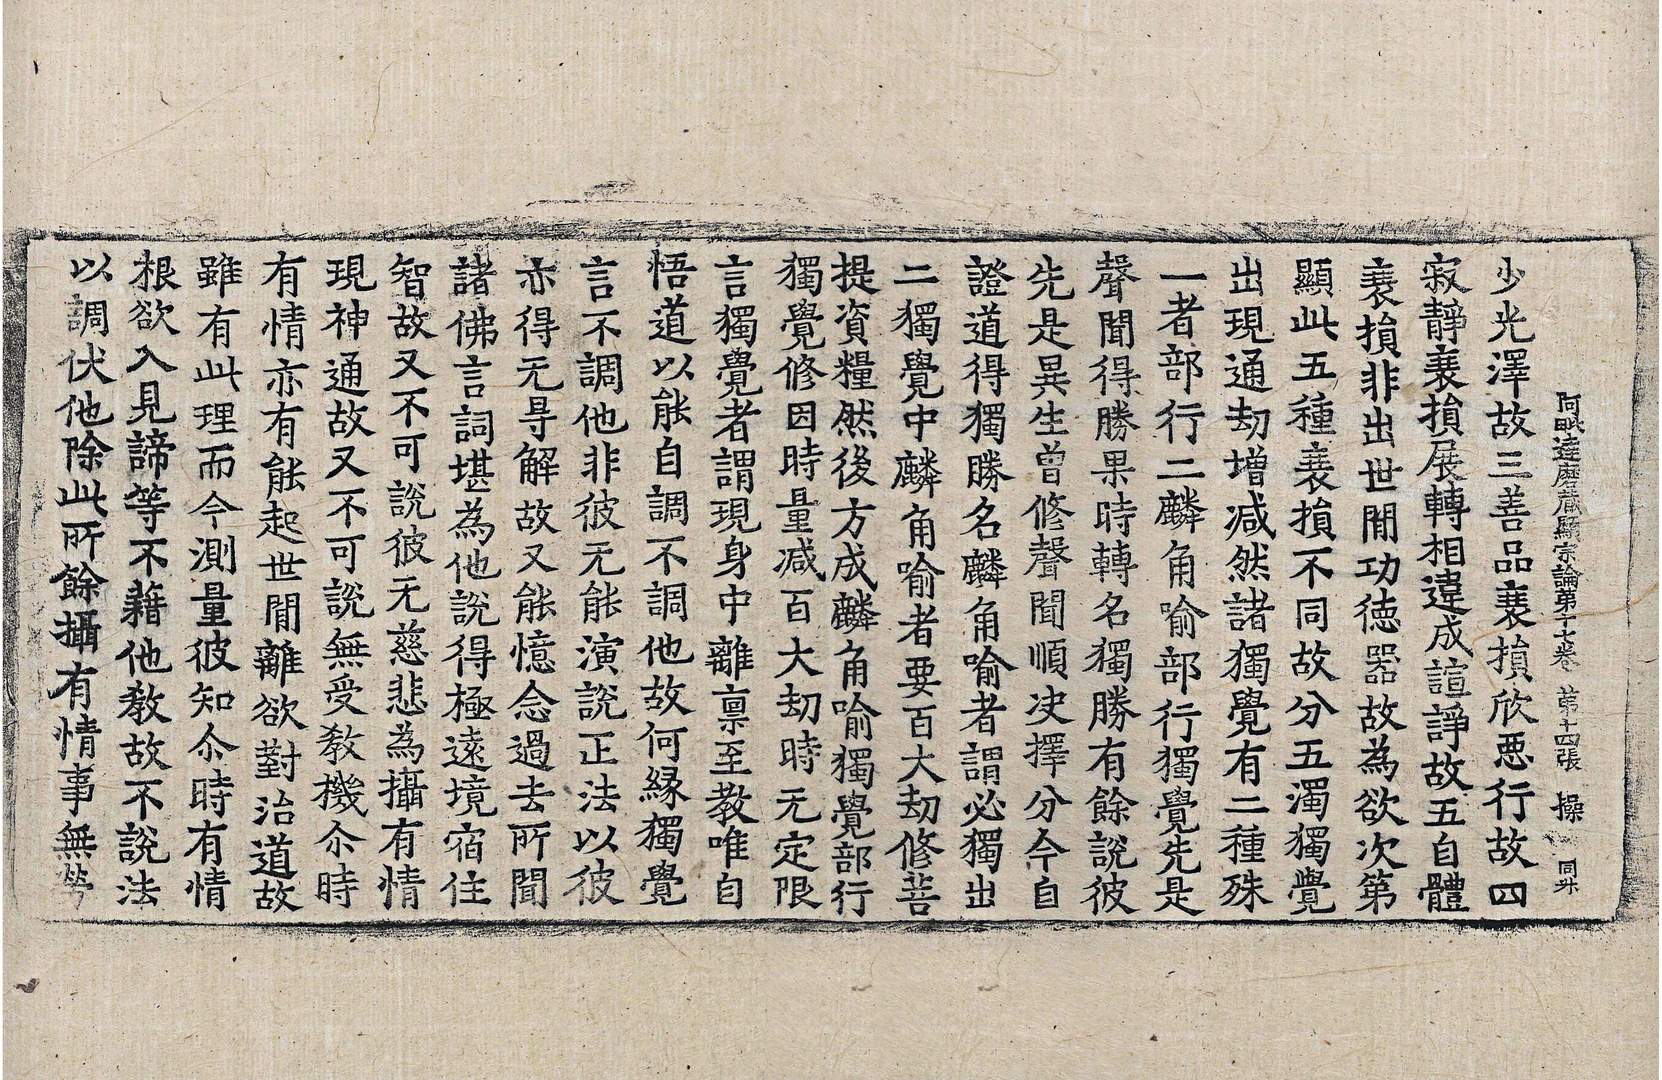 阿毗達磨藏顯宗論第十七卷 第十四張 操 同舛
少光澤故三善品衰損欣惡行故四
寂靜衰損展轉相違成諠諍故五自體
衰損非出世閒功德器故為欲次第
顯此五種衰損不同故分五濁獨覺
出現通劫增减然諸獨覺有二種殊
一者部行二麟角喻部行獨覺先是
聲聞得勝果時轉名獨勝有餘說彼
先是異生曾修聲聞順決擇分今自
證道得獨勝名麟角喻者謂必獨出
二獨覺中麟角喻者要百大劫修菩
提資糧然後方成麟角喻獨覺部行
獨覺修因時量减百大劫時无定限
言獨覺者謂現身中離稟至教唯自
悟道以能自調不調他故何緣獨覺
言不調他非彼无能演說正法以彼
亦得无㝵解故又能憶念過去所聞
諸佛言詞堪為他說得極遠境宿住
智故又不可說彼无慈悲為攝有情
現神通故又不可說無受教機尒時
有情亦有能起世閒離欲對治道故
雖有此理而今測量彼知尒時有情
根欲入見諦等不藉他教故不說法
以調伏他除此所餘攝有情事無勞